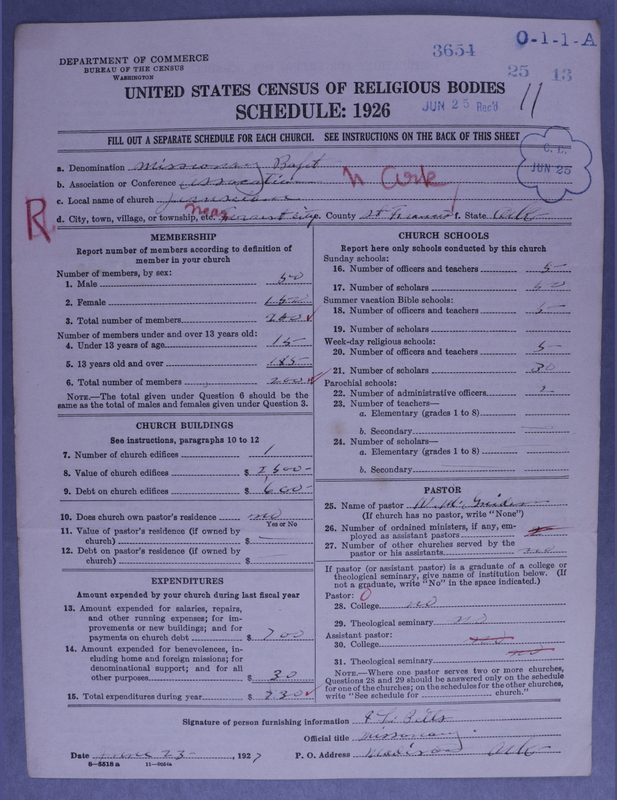 3654
O-1-1-A
DEPARTMENT OF COMMERCE
BUREAU OF THE CENSUS
WASHINGTON
25 13
UNITED STATES CENSUS OF RELIGIOUS BODIES
SCHEDULE: 1926
JUN 25 Rec'd
11
FILL OUT A SEPARATE SCHEDULE FOR EACH CHURCH. SEE INSTRUCTIONS ON THE BACK OF THIS SHEET
JUN 25
a. Denomination Missionary Bapt
b. Association or Conference N Ark
c. Local name of church
R
d. City, town, village, or township, etc. near Forrest City e. County St Francis f. State Ark
MEMBERSHIP
Report number of members according to definition of member in your church
Number of members, by sex:
1. Male 50
2. Female 150
3. Total number of members 200
Number of members under and over 13 years old:
4. Under 13 years of age 15
5. 13 years old and over 185
6. Total number of members 200
NOTE.—The total given under Question 6 should be the
same as the total of males and females given under Question 3.
CHURCH BUILDINGS
See instructions, paragraphs 10 to 12
7. Number of church edifices 1
8. Value of church edifices $ 1500
9. Debt on church edifices $ 600
10. Does church own pastor's residence no
Yes or No
11. Value of pastor's residence (if owned by
church) $
12. Debt on pastor's residence (if owned by
church) $
EXPENDITURES
Amount expended by your church during last fiscal year
13. Amount expended for salaries, repairs,
and other running expenses; for im-
provements or new buildings; and for
payments on church debt $ 700
14. Amount expended for benevolences, in-
cluding home and foreign missions; for
denominational support; and for all
other purposes $ 30
15. Total expenditures during year $ 730
CHURCH SCHOOLS
Report here only schools conducted by this church
Sunday schools:
16. Number of officers and teachers 5
17. Number of scholars 60
Summer vacation Bible schools:
18. Number of officers and teachers 5
19. Number of scholars
Week-day religious schools:
20. Number of officers and teachers 5
21. Number of scholars 30
Parochial schools:
22. Number of administrative officers 2
23. Number of teachers—
a. Elementary (grades 1 to 8)
b. Secondary
24. Number of scholars—
a. Elementary (grades 1 to 8)
b. Secondary
PASTOR
25. Name of pastor
(If church has no pastor, write "None")
26. Number of ordained ministers, if any, em-
ployed as assistant pastors
27. Number of other churches served by the
pastor or his assistants
If pastor (or assistant pastor) is a graduate of a college or
theological seminary, give name of institution below. (If
not a graduate, write "No" in the space indicated.)
Pastor: 0
28. College no
29. Theological seminary no
Assistant pastor:
30. College no
31. Theological seminary no
NOTE.—Where one pastor serves two or more churches,
Questions 28 and 29 should be answered only on the schedule
for one of the churches; on the schedules for the other churches,
write "See schedule for church."
Signature of person furnishing information
Official title Missionary
Date June 23 1927 P. O. Address Madison Ark
9-5518 a